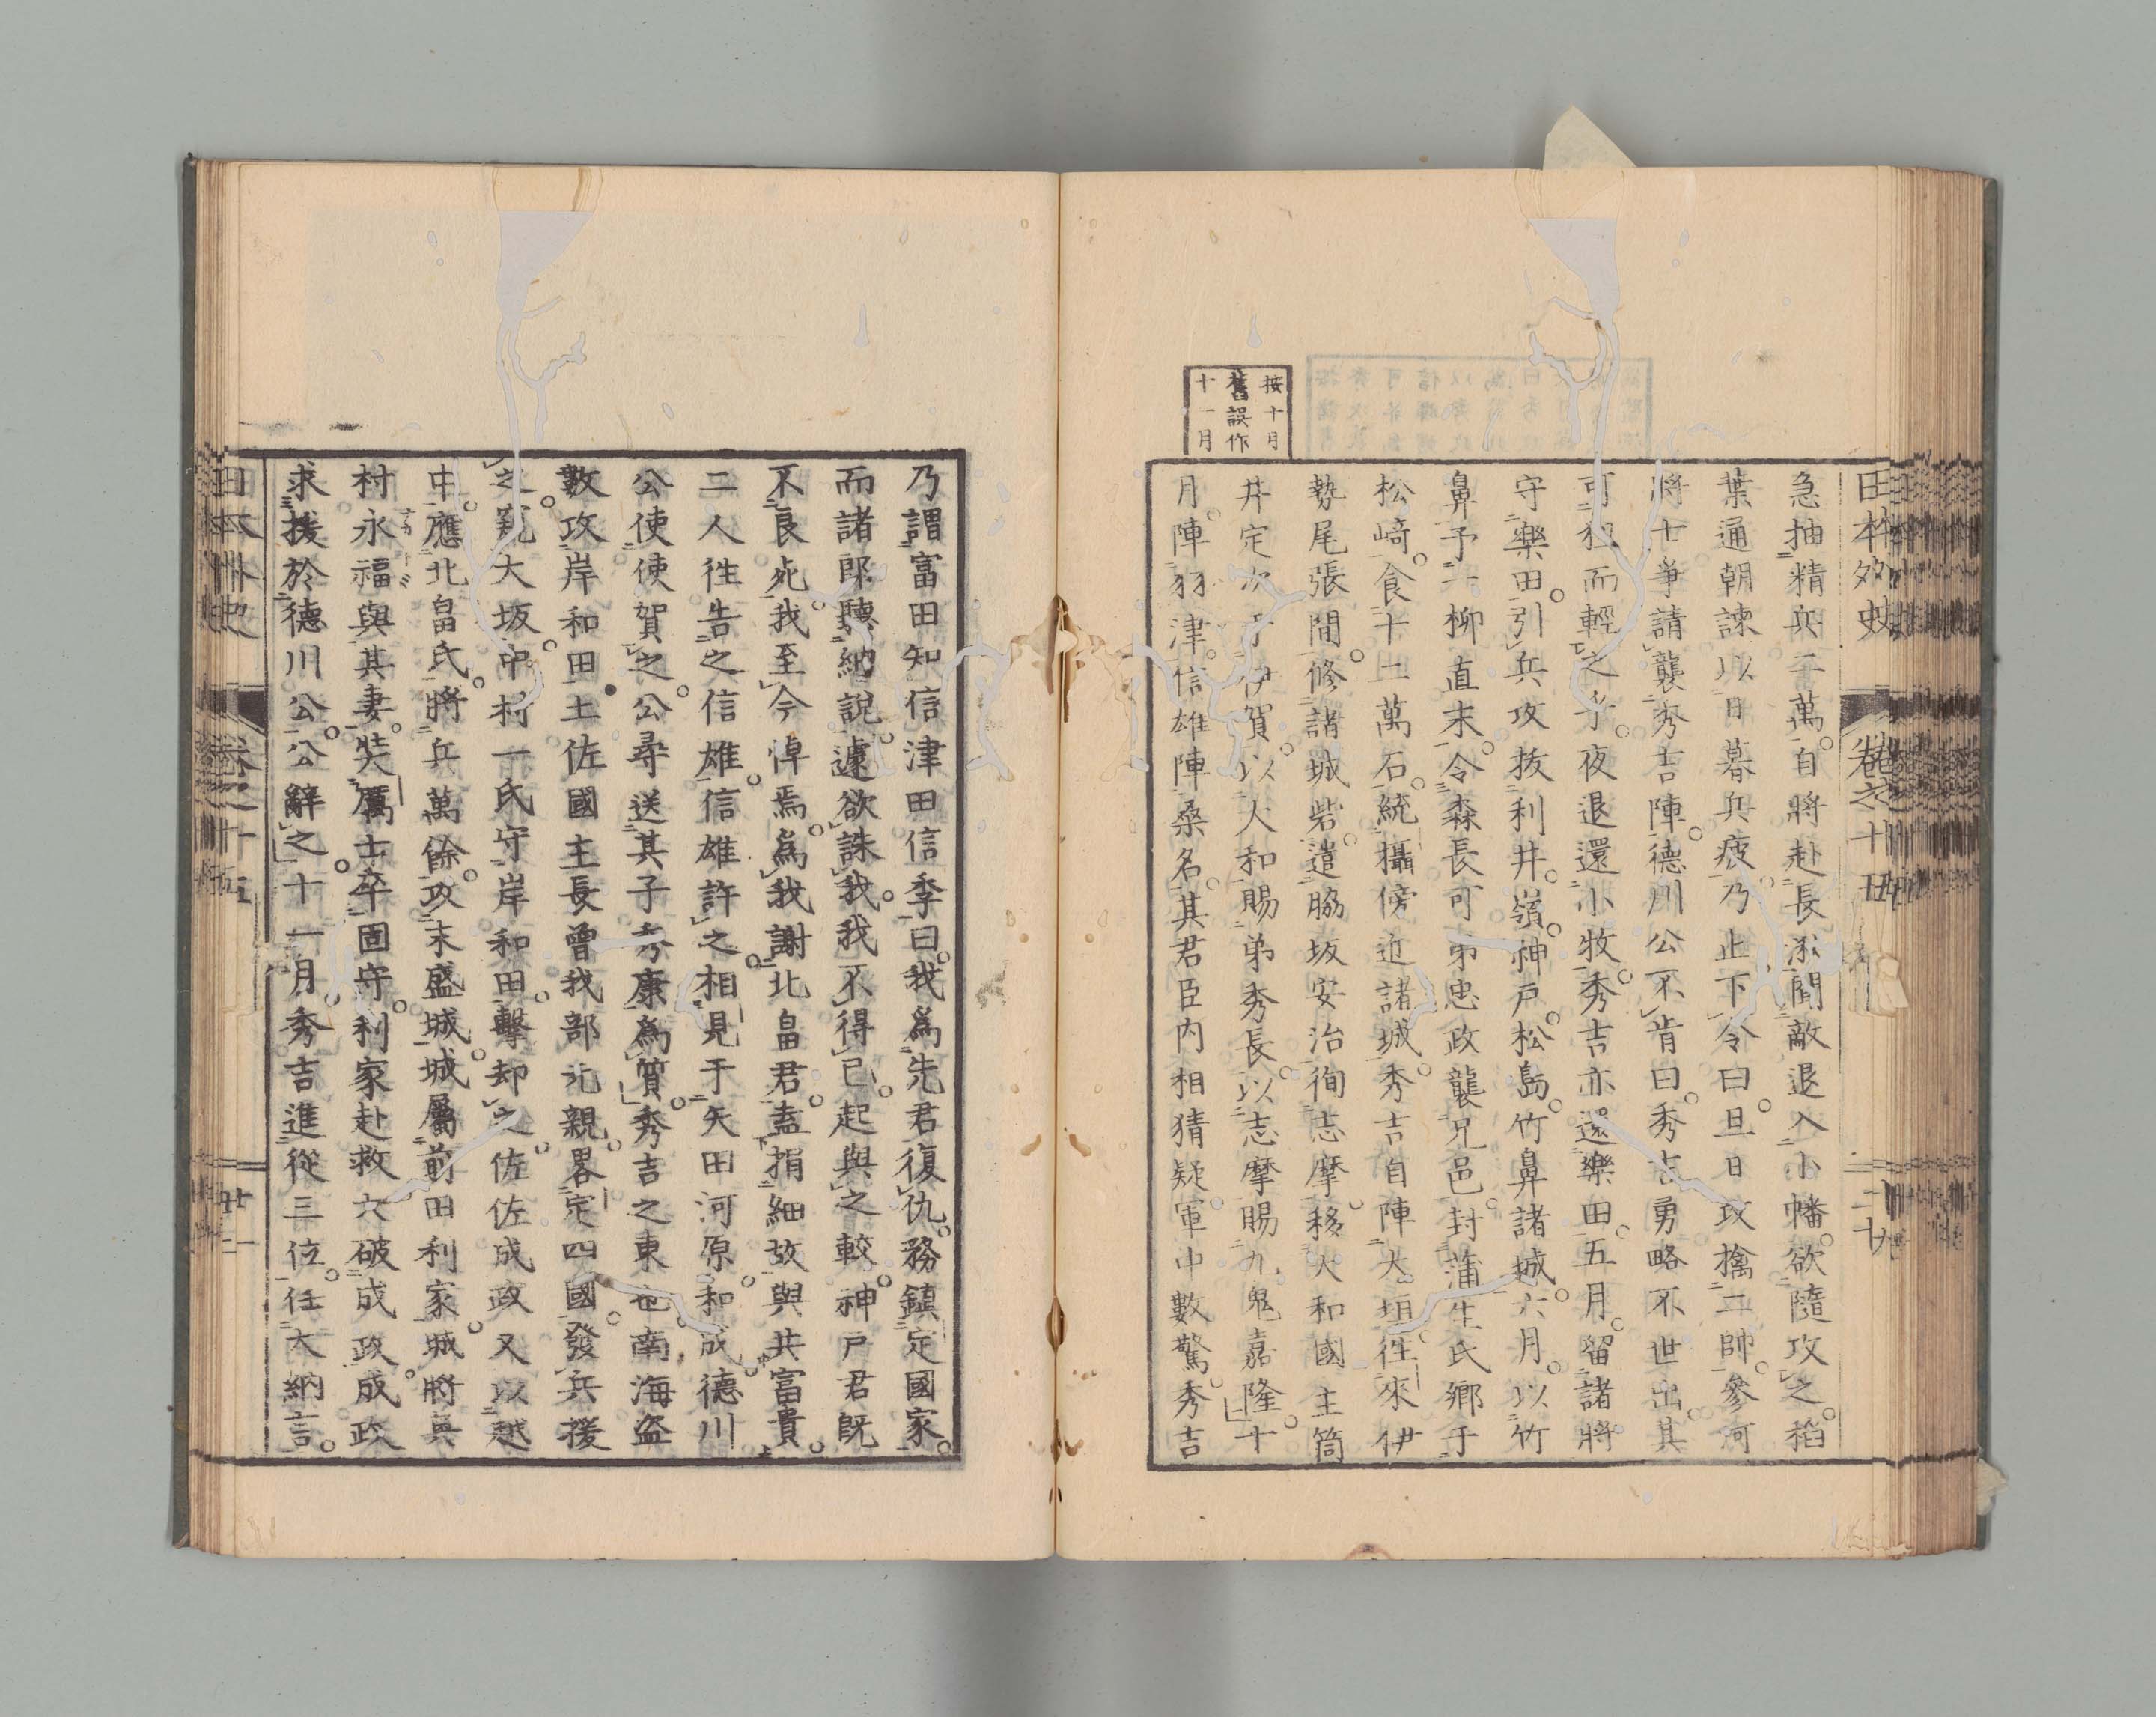 日本外史 卷之十五 二十
急抽精兵二萬自將赴長湫聞敵退入小幡欲隨攻之稻
葉通朝諫以日暮兵疲乃止下令曰旦日攻擒二帥參河
將士爭請襲秀吉陣德川公不肯曰秀吉勇略不世出其
可狃而輕之乎夜退還小牧秀吉亦還樂田五月留諸將
守樂田引兵攻拔利井嶺神戶松島竹鼻諸城六月以竹
鼻予一柳直末令森長可弟忠政襲兄邑封蒲生氏鄉于
松﨑食十二萬石統攝傍近諸城秀吉自陣大垣徃來伊
勢尾張間修諸城砦遣脇坂安治徇志摩移大和國主筒
井定次于伊賀以大和賜弟秀長以志摩賜九鬼嘉隆十
月陣羽津信雄陣桑名其君臣内相猜疑軍中數驚秀吉
按十月
舊誤作
十一月
乃謂富田知信津田信季曰我爲先君復仇務鎮定國家
而諸郎聽納說遽欲誅我我不得已起與之較神戶君旣
不良死我至今悼焉爲我謝北畠君盍捐細故與共富貴
二人徃告之信雄信雄許之相見于矢田河原和成德川
公使使賀之公尋送其子秀康爲質秀吉之東也南海盜
數攻岸和田土佐國主長曾我部元親畧定四國發兵援
之窺大坂中村一氏守岸和田擊却之佐佐成政又以越
中應北畠氏將兵萬餘攻末盛城城屬前田利家城將奧
村永福與其妻奘厲士卒固守利家赴救大破成政成政
求援於德川公公辭之十一月秀吉進從三位任大納言
日本外史 卷之十五 廿一